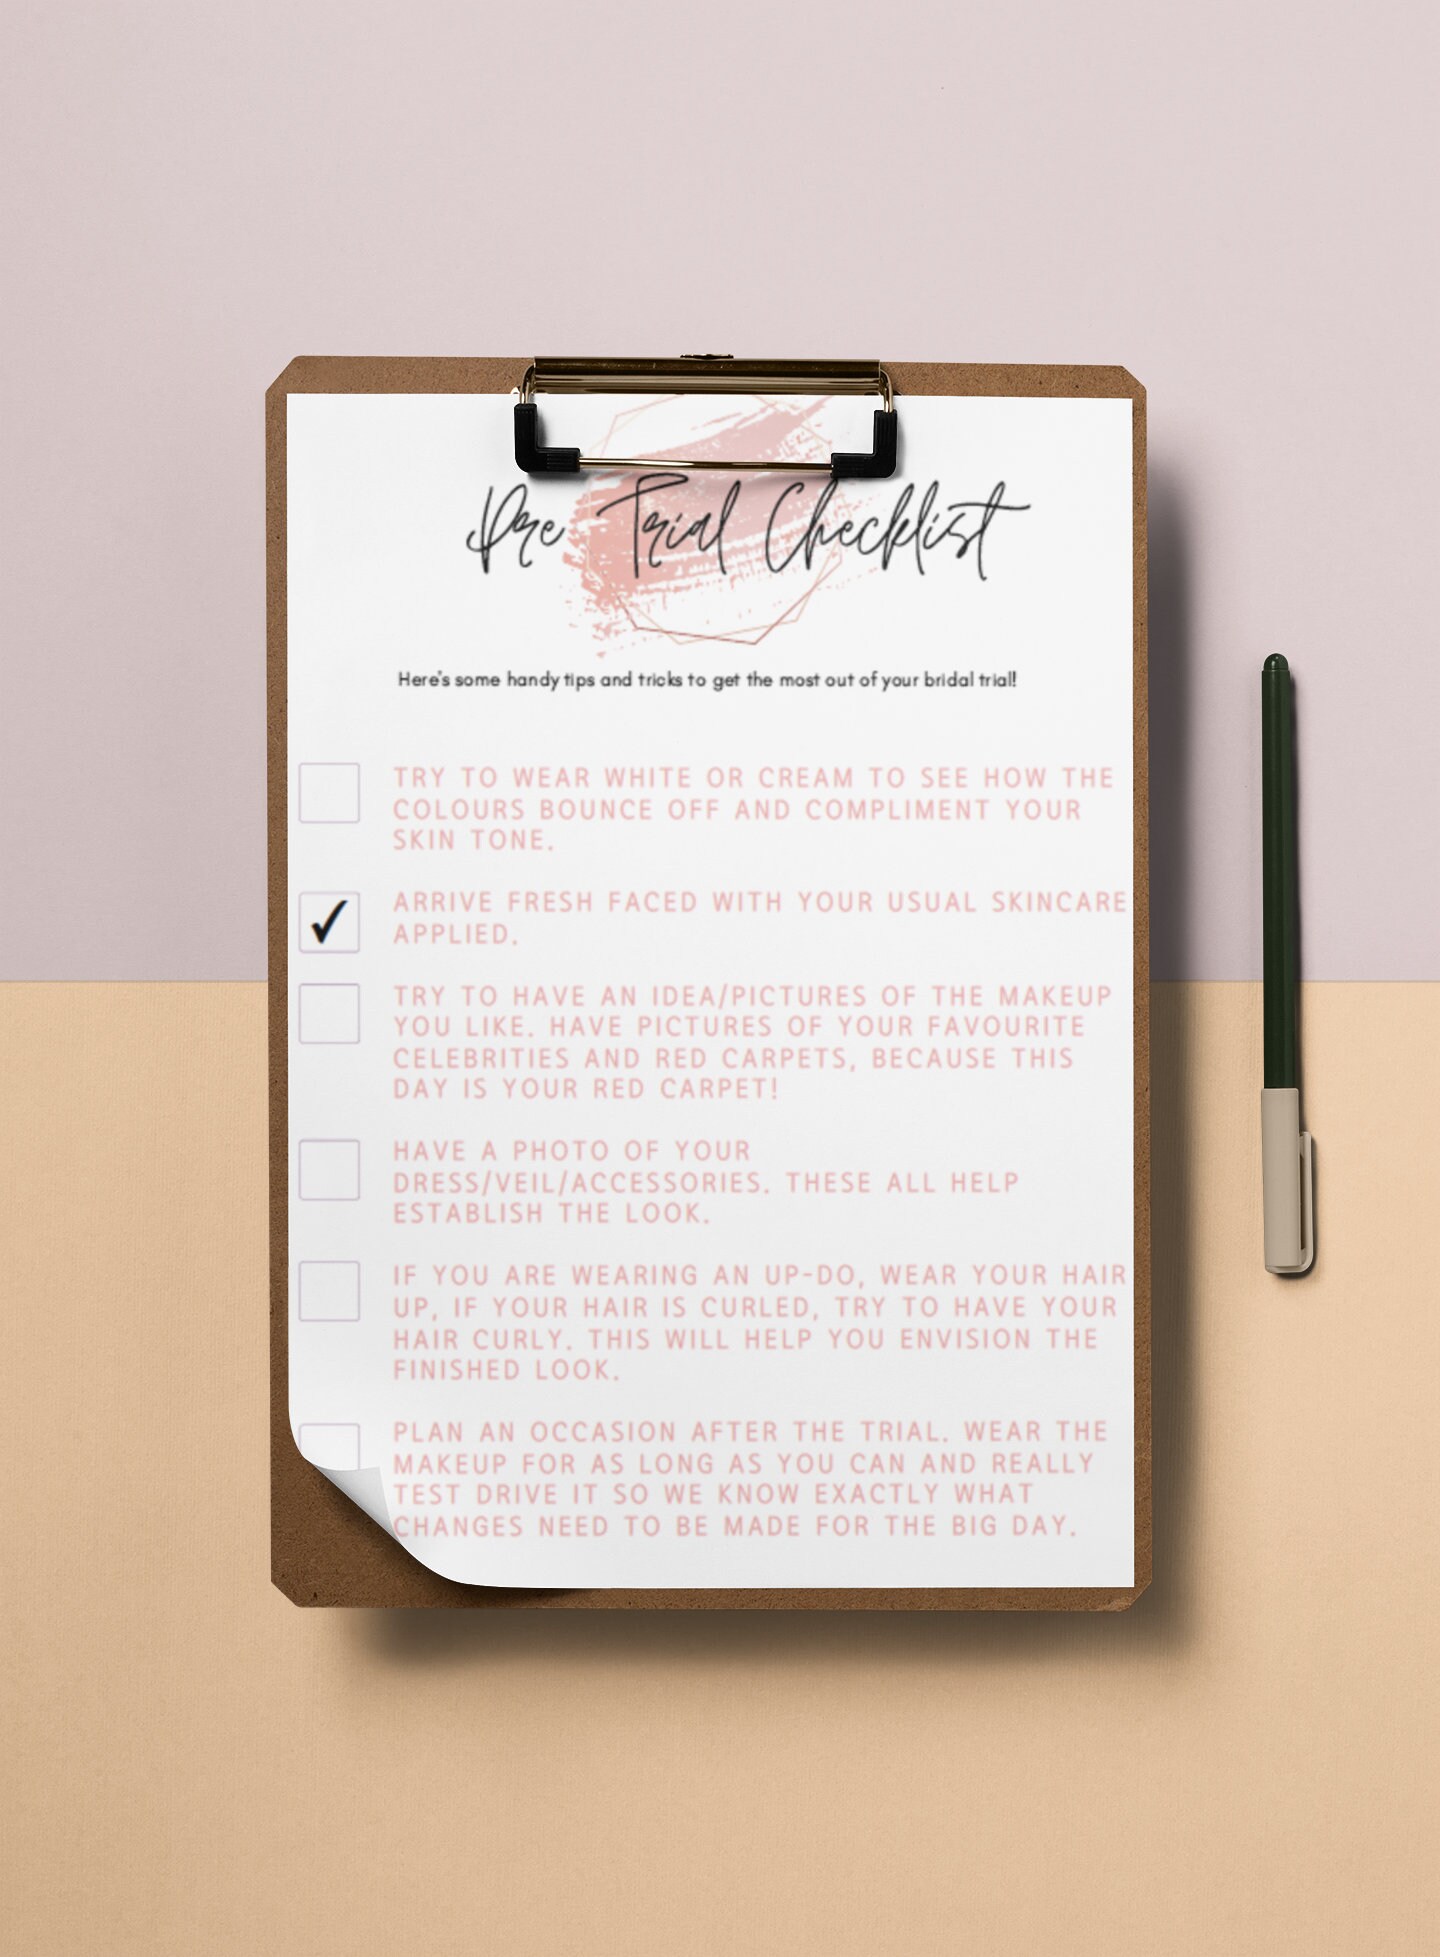 Pre Trial Checklist
Here's some handy tips and tricks to get the most out of your bridal trial!
TRY TO WEAR WHITE OR CREAM TO SEE HOW THE
COLOURS BOUNCE OFF AND COMPLIMENT YOUR
SKIN TONE.
ARRIVE FRESH FACED WITH YOUR USUAL SKINCARE
APPLIED.
TRY TO HAVE AN IDEA/PICTURES OF THE MAKEUP
YOU LIKE. HAVE PICTURES OF YOUR FAVOURITE
CELEBRITIES AND RED CARPETS, BECAUSE THIS
DAY IS YOUR RED CARPET!
HAVE A PHOTO OF YOUR
DRESS/VEIL/ACCESSORIES. THESE ALL HELP
ESTABLISH THE LOOK.
IF YOU ARE WEARING AN UP-DO, WEAR YOUR HAIR
UP, IF YOUR HAIR IS CURLED, TRY TO HAVE YOUR
HAIR CURLY. THIS WILL HELP YOU ENVISION THE
FINISHED LOOK.
PLAN AN OCCASION AFTER THE TRIAL. WEAR THE
MAKEUP FOR AS LONG AS YOU CAN AND REALLY
TEST DRIVE IT SO WE KNOW EXACTLY WHAT
CHANGES NEED TO BE MADE FOR THE BIG DAY.